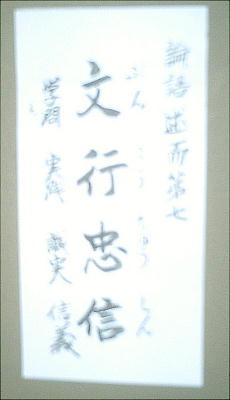 論語 述而第七
ぶん こう ちゅう しん
文行忠信
学問 実践 誠実 信義